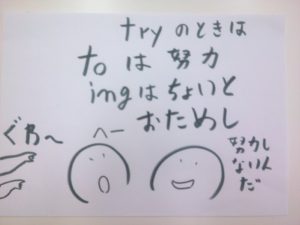 tryのときは
toは努力
ingはちょいと
おためし
ぐわ〜
へー
努力し
ないん
だ